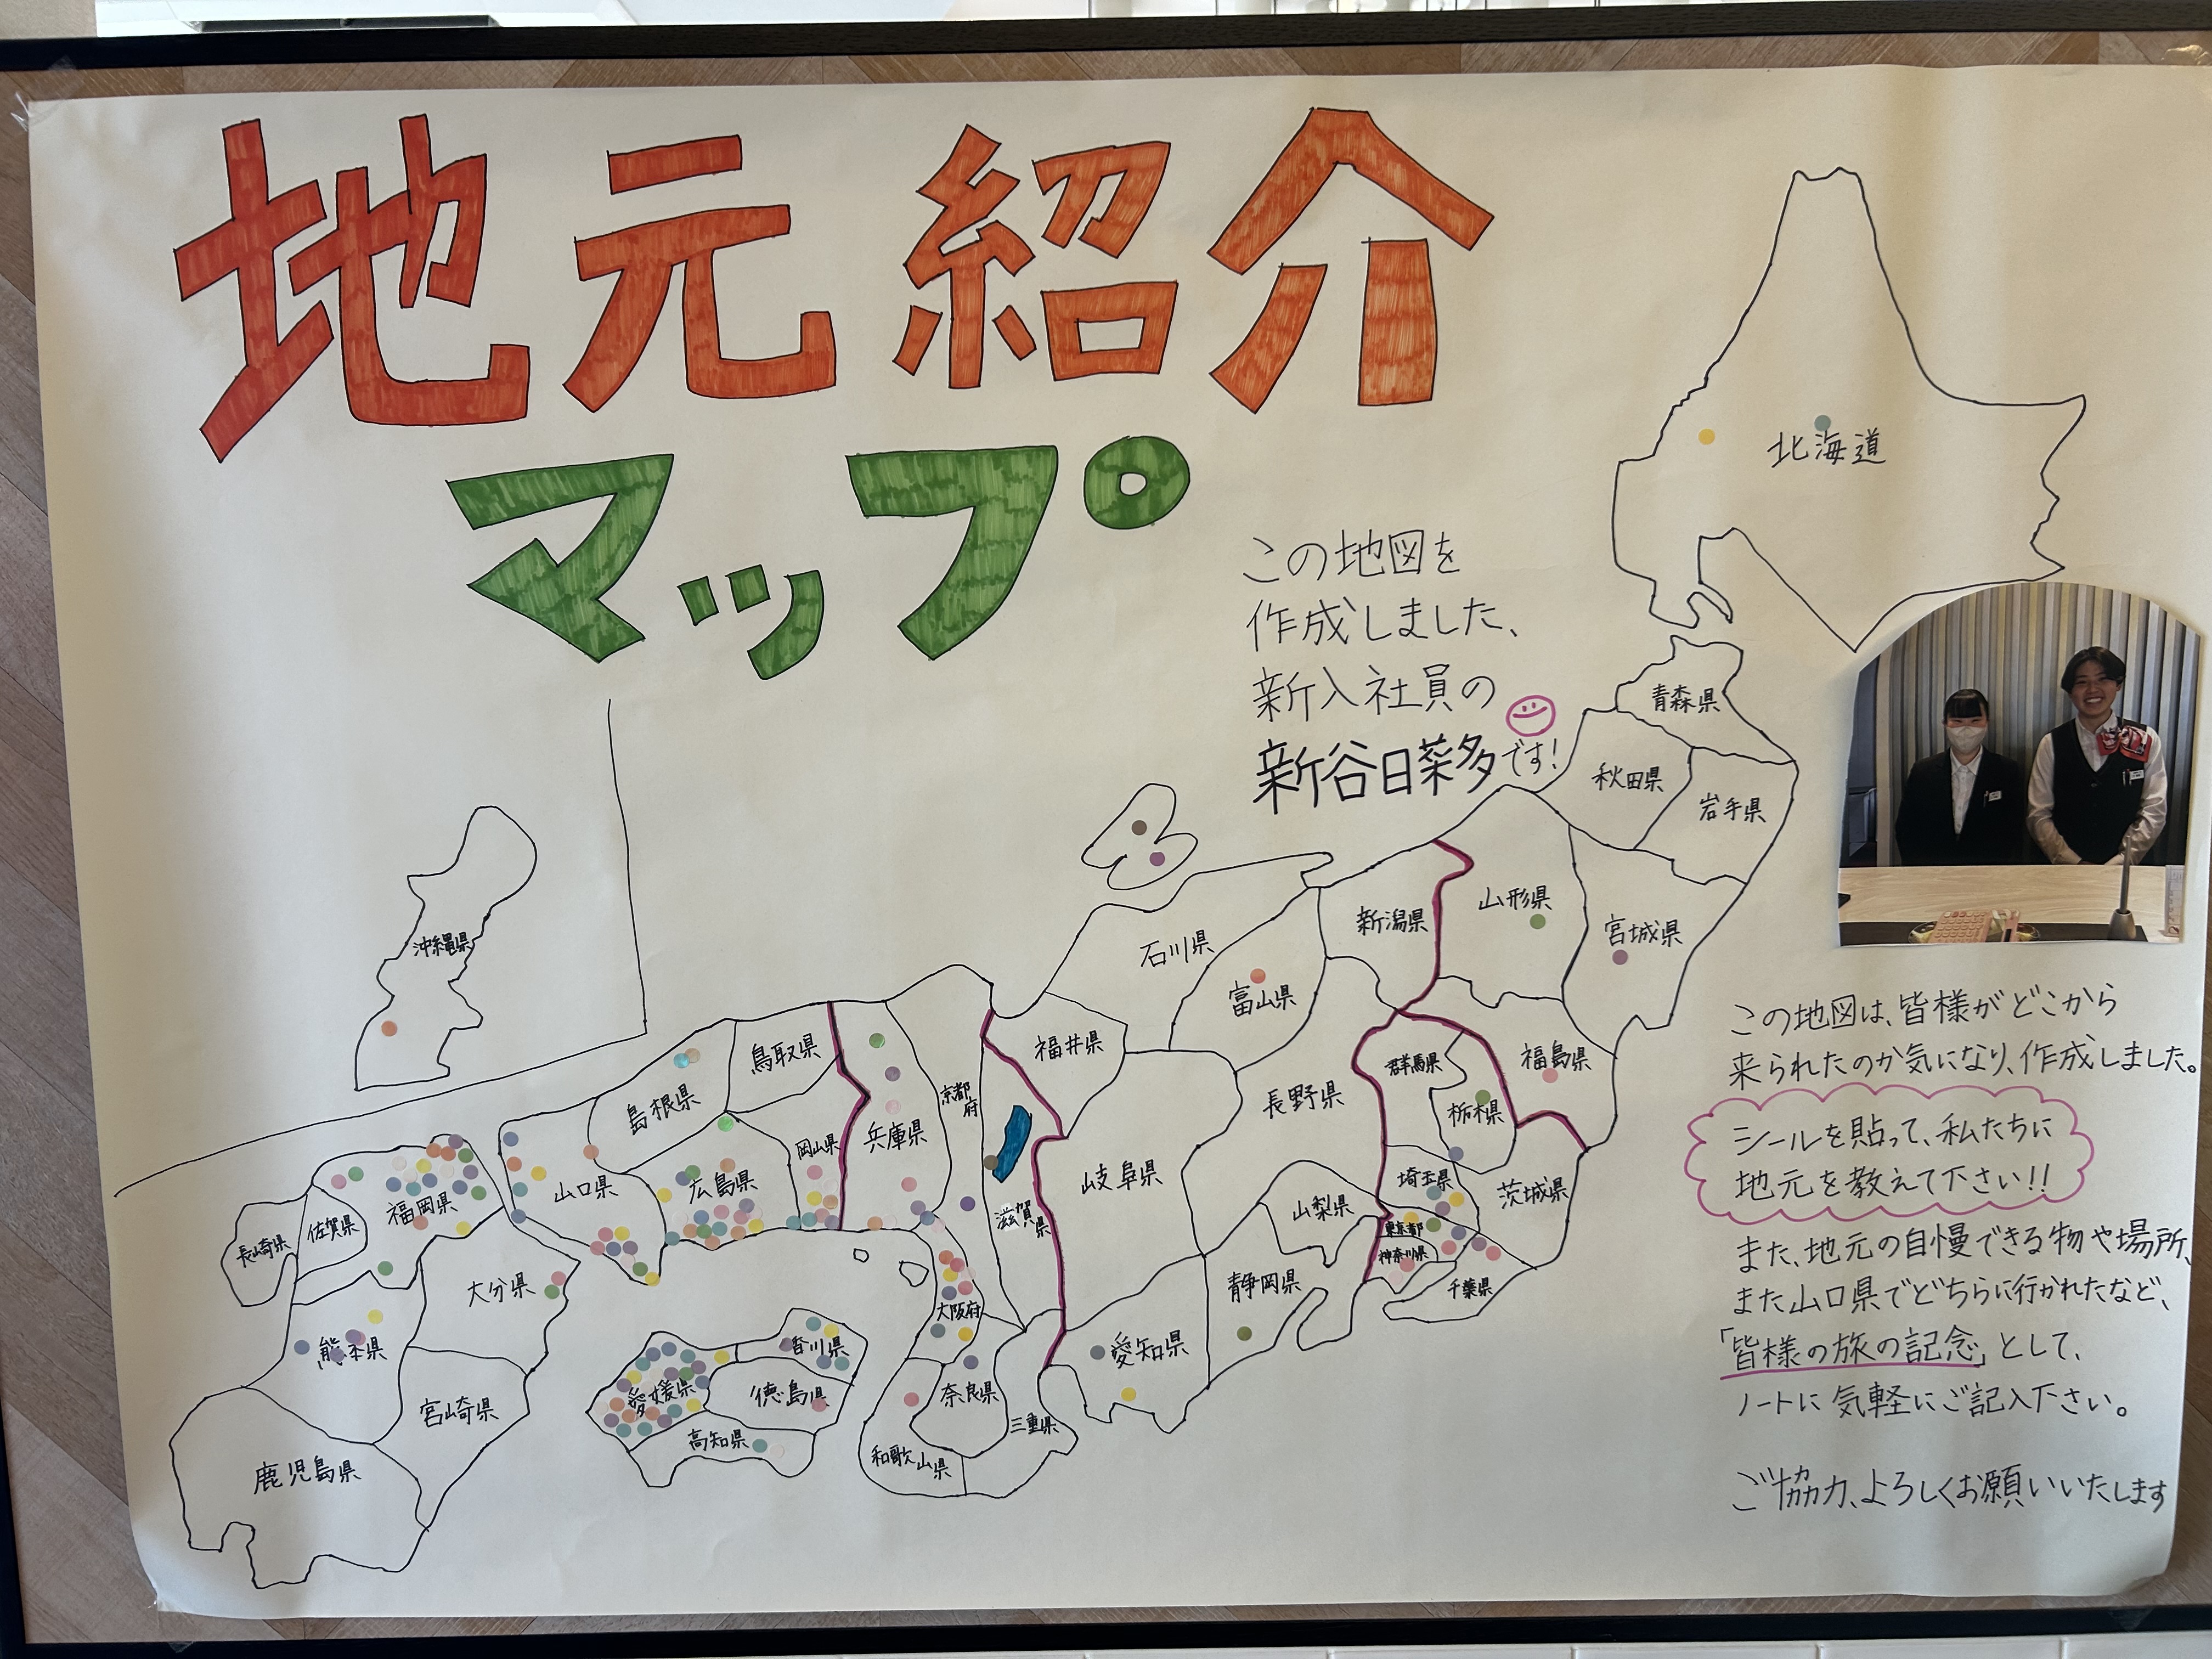 地元紹介
マップ
この地図を
作成しました、
新入社員の
新谷日菜多です!
北海道
青森県
秋田県
岩手県
山形県
宮城県
新潟県
福島県
石川県
富山県
福井県
長野県
群馬県
栃木県
岐阜県
山梨県
埼玉県
茨城県
東京都
神奈川県
千葉県
静岡県
愛知県
沖縄県
鳥取県
島根県
岡山県
広島県
山口県
兵庫県
京都府
滋賀県
大阪府
奈良県
三重県
和歌山県
香川県
愛媛県
徳島県
高知県
福岡県
佐賀県
長崎県
大分県
熊本県
宮崎県
鹿児島県
この地図は、皆様がどこから
来られたのか気になり、作成しました。
シールを貼って、私たちに
地元を教えて下さい!!
また、地元の自慢できる物や場所、
また山口県でどちらに行かれたなど、
「皆様の旅の記念」として、
ノートに気軽にご記入下さい。
ご協力、よろしくお願いいたします